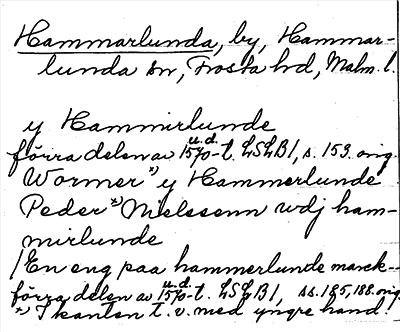 Hammarlunda, by, Hammar-
lunda sn, Frosta hd, Malm. l.
y Hammirlunde
u.d.
förra delen av 1570-t. LSLB1, s. 153. orig.
Wormer x) y Hammerlunde
Peder x) Nielssenn udj ham-
mirlunde
/En eng paa hammerlunde marck-
u.d.
förra delen av 1570-t. LSLB1, ss. 185, 188. orig.
x) I kanten t. v. med yngre hand!